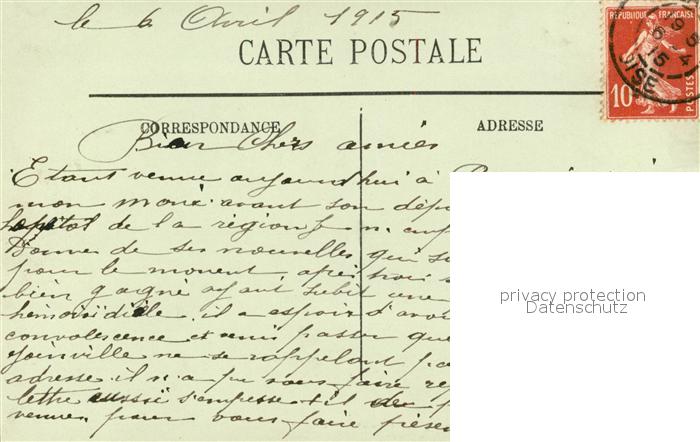 le 6 Avril 1915
CARTE POSTALE
REPUBLIQUE FRANÇAISE
10
POSTES
OISE
CORRESPONDANCE
ADRESSE
Bien Chers amies
Etant venue aujourd'hui à
mon mari avant son dép
hopital de la région
Donner de ses nouvelles qui
pour le moment après trois
bien gagné ayant subit une
hémoroidielle il a espoir d'avoi
convalescence et venir passer que
Joinville ne se rappelant pa
adresse il n'a pu vous faire
lettre aussi s'empresse-t-il de
venue pour vous faire
privacy protection
Datenschutz